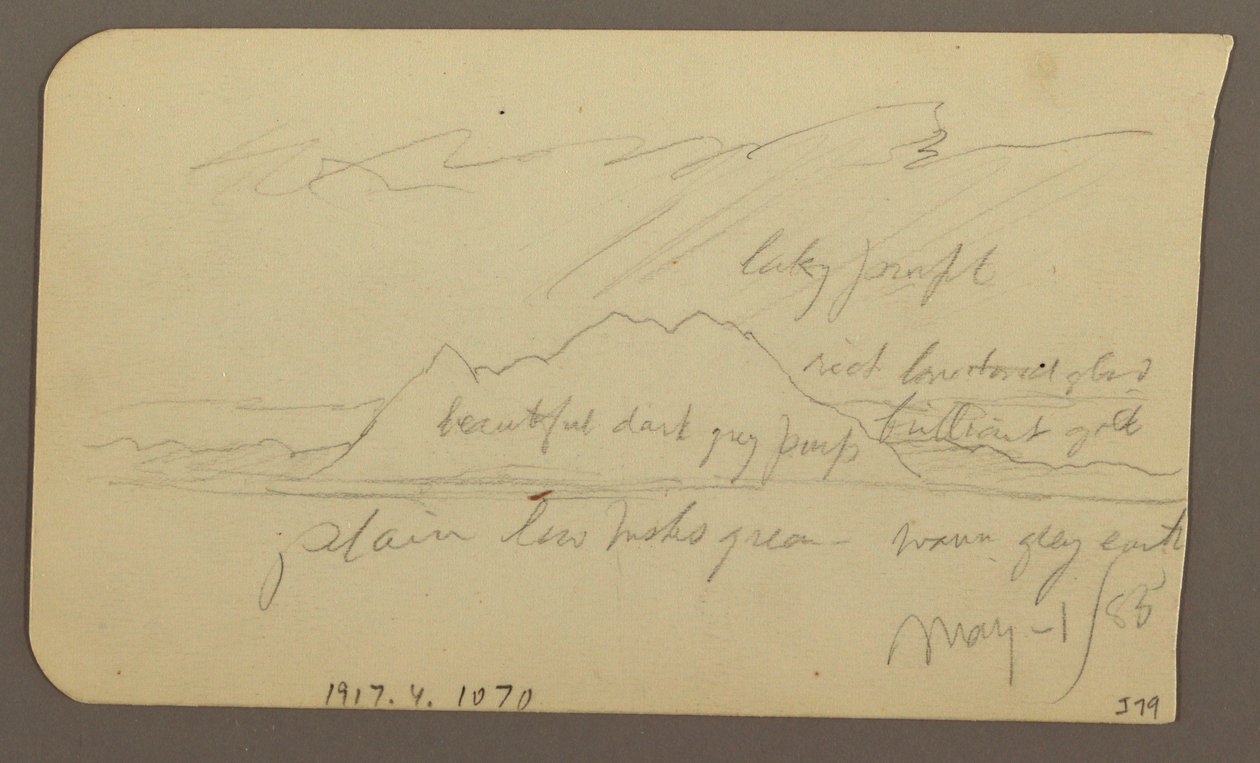 laky purpl
rich gold
brilliant gold
beautiful dark grey purp
plain low bushes green - warm grey earth
May - 1 / 85
1917.4.1070
J79